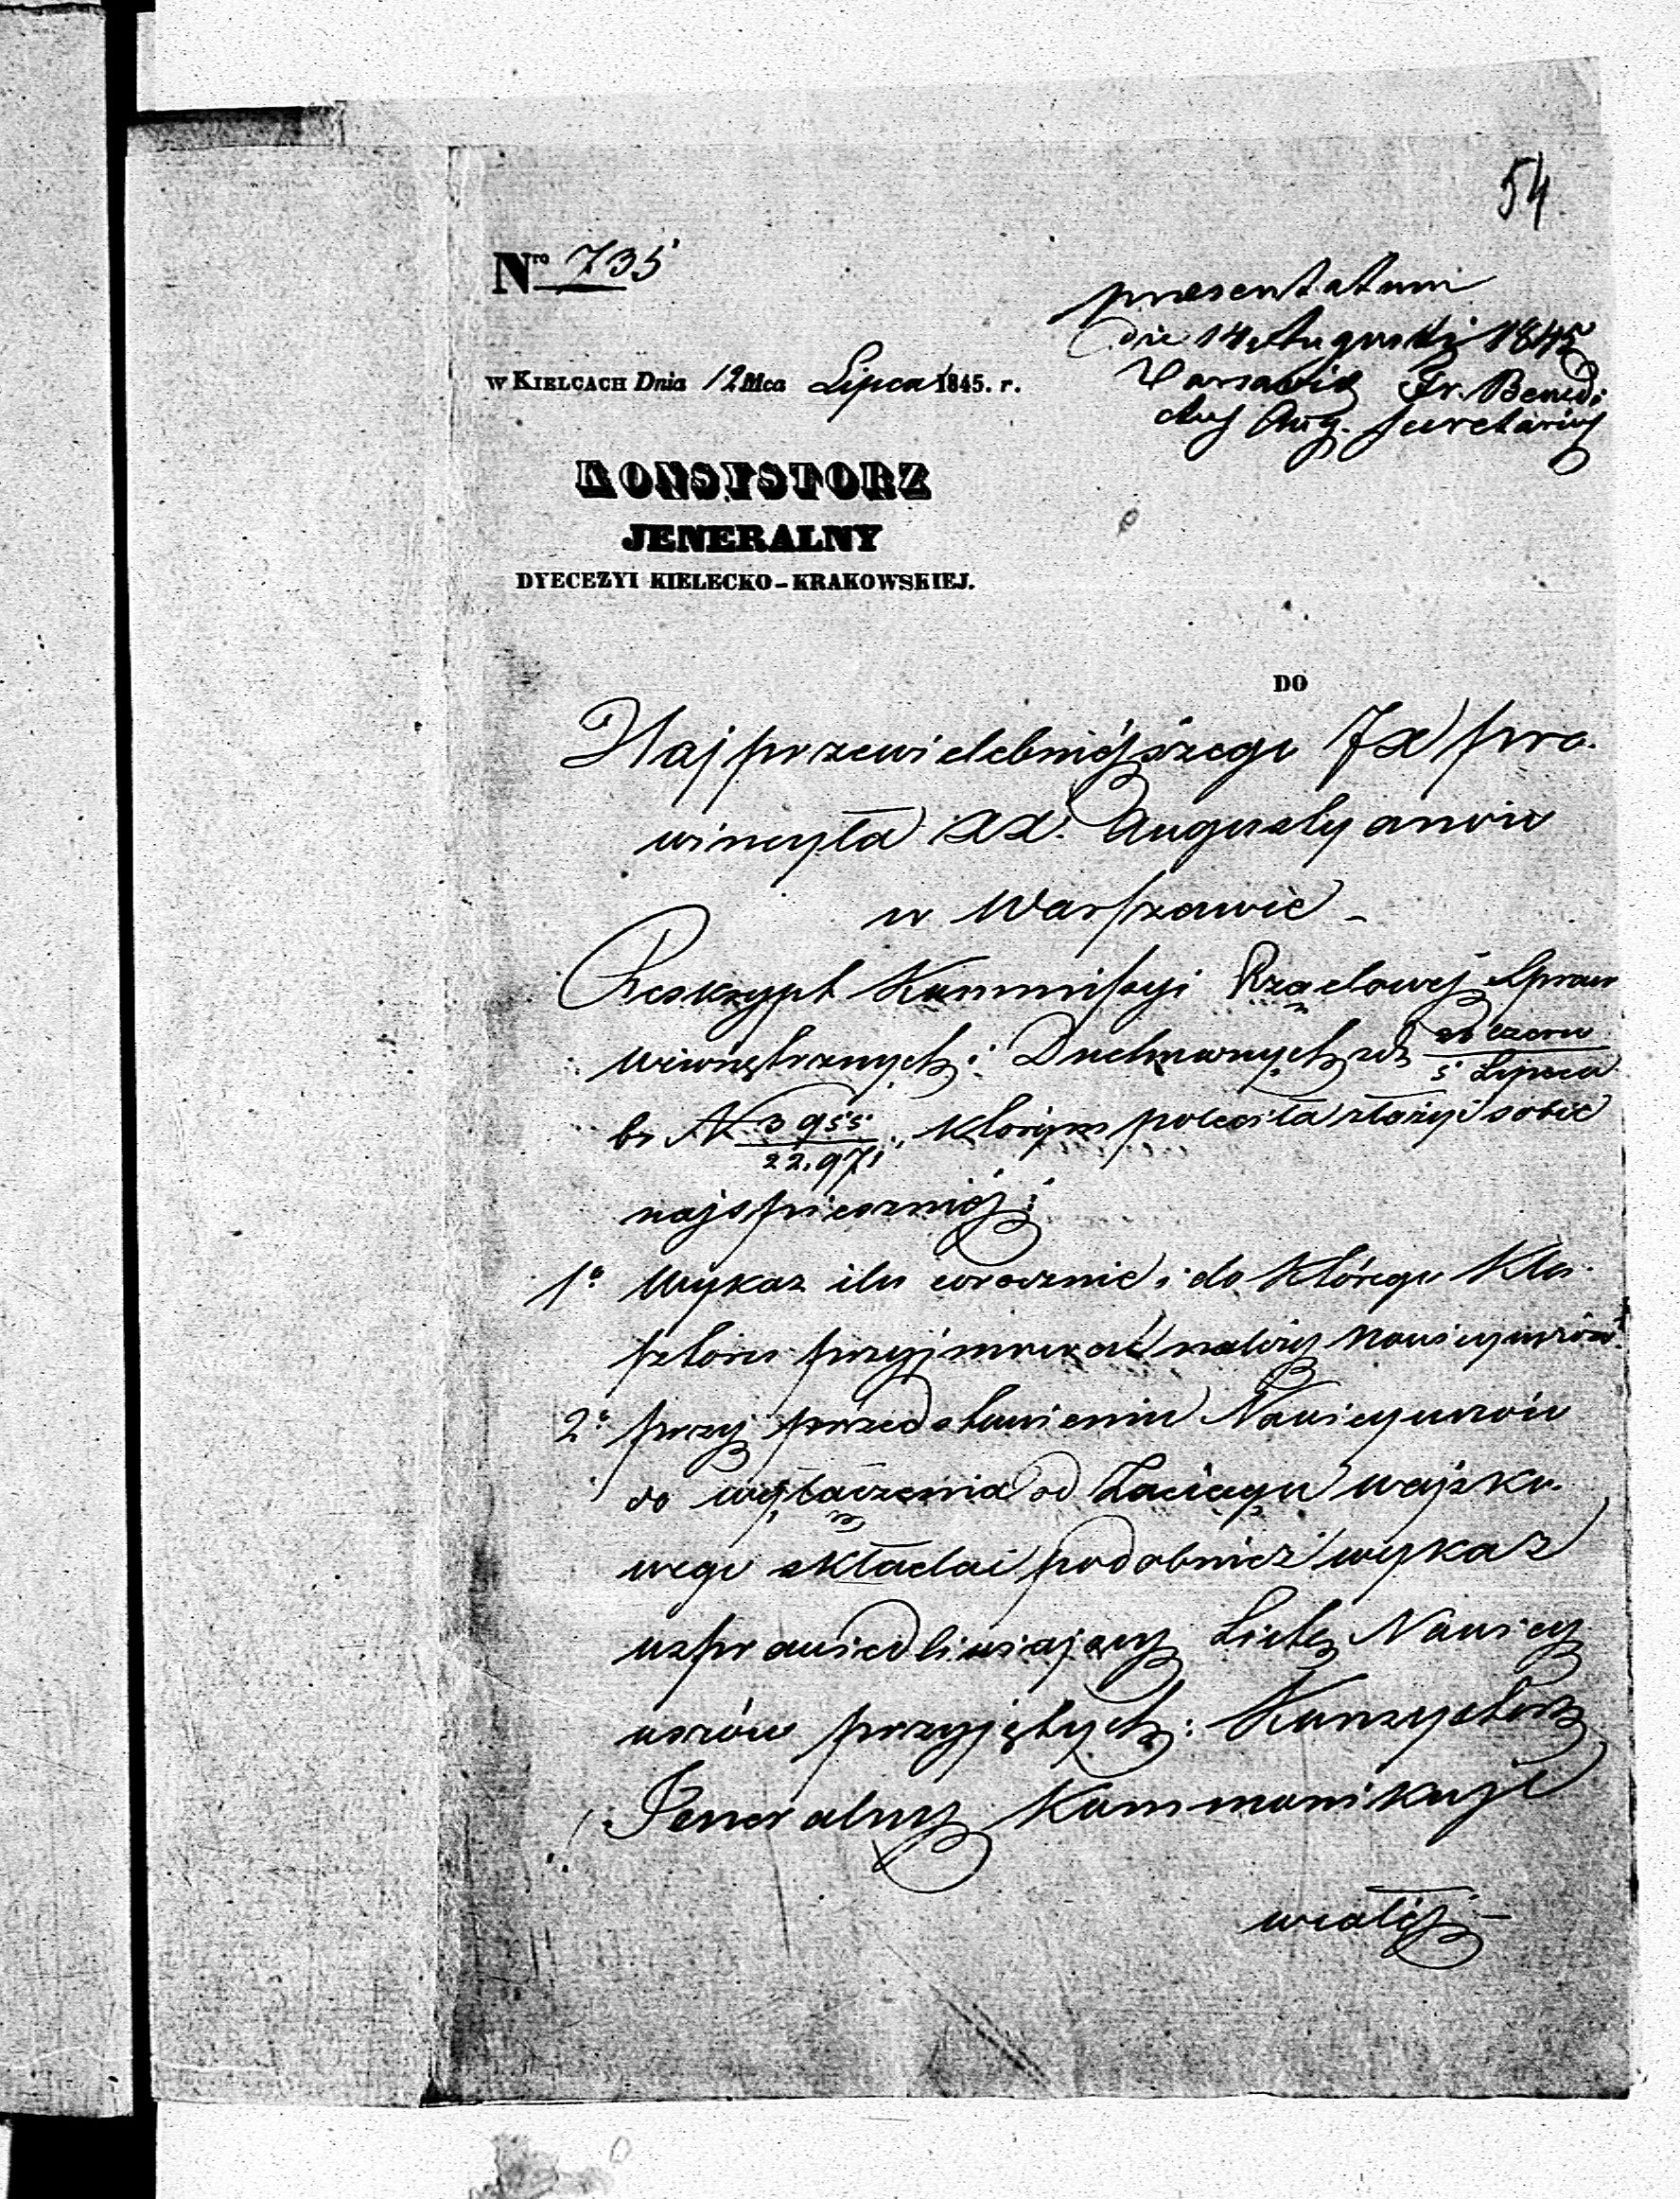 54
Nro 735
presentatum
die 14 Augusti 1845
w Kielcach Dnia 12 Mca Lipca 1845. r.
Varsaviae Fr. Benedi
ctus Aug. Secretarius
KONSYSTORZ
JENERALNY
DYECEZYI KIELECKO-KRAKOWSKIEJ.
DO
Najprzewielebniejszego JX pro.
wincyła XX. Augustyanów
w Warszawie -
Reskrypt Kommissyi Rządowej Spraw
Wewnętrznych i Duchownych z d. Czerw
5 Lipca
b. N 3955
22,971 którym poleciła złożyć sobie
najspieszniej:
1o Wykaz ilu corocznie i do którego Kla.
sztoru przyjmować należy Nowicyuszów
2o przy przedstawieniu Nowicyuszów
do wyłączenia od Zaciągu wojsko.
wego składać podobnież wykaz
usprawiedliwiający Liczbę Nowicy
uszów przyjętych: Konsystorz
Jeneralny Kommunikuje
wcałej -